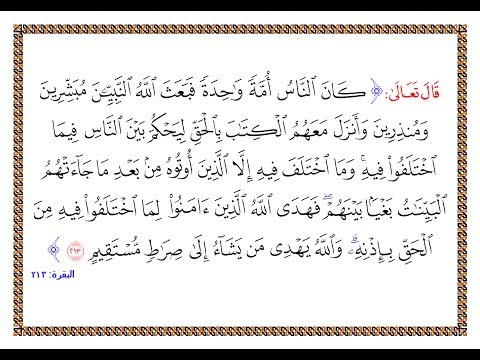 قَالَ تَعَالَىٰ: ﴿ كَانَ ٱلنَّاسُ أُمَّةً وَٰحِدَةً فَبَعَثَ ٱللَّهُ ٱلنَّبِيِّـۧنَ مُبَشِّرِينَ
وَمُنذِرِينَ وَأَنزَلَ مَعَهُمُ ٱلْكِتَٰبَ بِٱلْحَقِّ لِيَحْكُمَ بَيْنَ ٱلنَّاسِ فِيمَا
ٱخْتَلَفُوا۟ فِيهِ ۚ وَمَا ٱخْتَلَفَ فِيهِ إِلَّا ٱلَّذِينَ أُوتُوهُ مِنۢ بَعْدِ مَا جَآءَتْهُمُ
ٱلْبَيِّنَٰتُ بَغْيًۢا بَيْنَهُمْ ۖ فَهَدَى ٱللَّهُ ٱلَّذِينَ ءَامَنُوا۟ لِمَا ٱخْتَلَفُوا۟ فِيهِ مِنَ
ٱلْحَقِّ بِإِذْنِهِۦ ۗ وَٱللَّهُ يَهْدِى مَن يَشَآءُ إِلَىٰ صِرَٰطٍ مُّسْتَقِيمٍ ٢١٣ ﴾
البقرة: ٢١٣